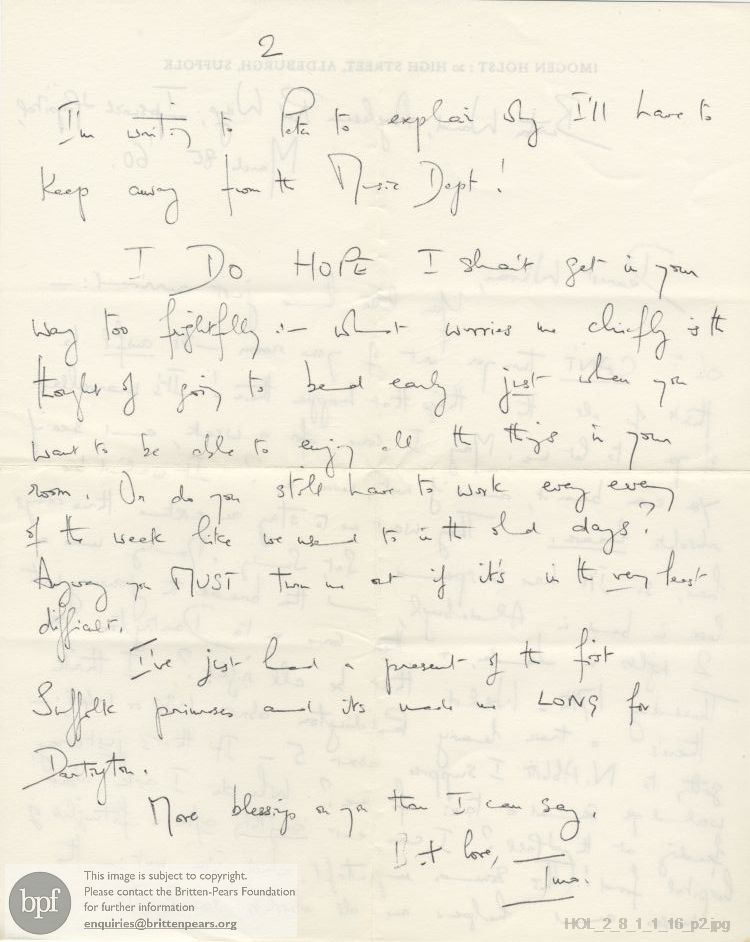 2
I'm writing to Peter to explain why I'll have to
keep away from the Music Dept!
I DO HOPE I shan't get in your
way too frightfully :- what worries me chiefly is the
thought of going to bed early just when you
want to be able to enjoy all the things in your
room. Or do you still have to work every evening
of the week like we used to in the old days?
Anyway you MUST turn me out if it's in the very least
difficult.
I've just had a present of the first
Suffolk primroses and it's made me LONG for
Dartington.
More blessings on you than I can say,
Best love,
Imo.
bpf
This image is subject to copyright.
Please contact the Britten-Pears Foundation
for further information
enquiries@brittenpears.org
HOL_2_8_1_1_16_p2.jpg